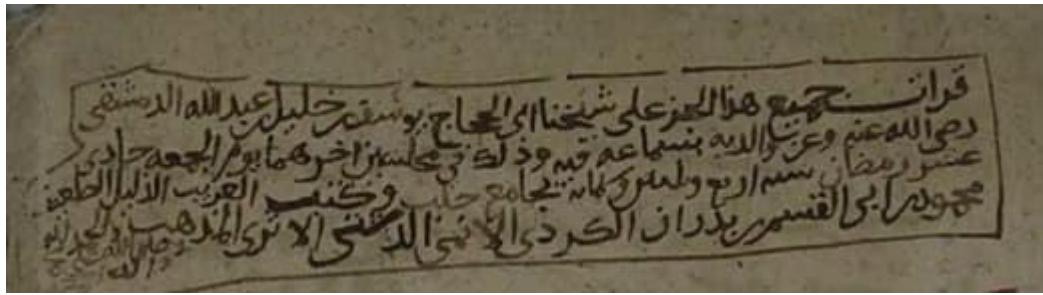 قرات جميع هذا الجز على شيخنا ابى الحجاج يوسف بن خليل بن عبد الله الدمشقى
رضى الله عنه وعن والديه بسماعه فيه وذلك فى مجلسين اخرهما يوم الجمعه حادى
عشر رمضان سنه اربع وثلثين وستمائة بجامع حلب وكتب العريب الذليل
محمود بن ابى القسم بن بدران الكردى الانمى الدشتى الاثرى المذهب والحمد لله
وصلى الله على